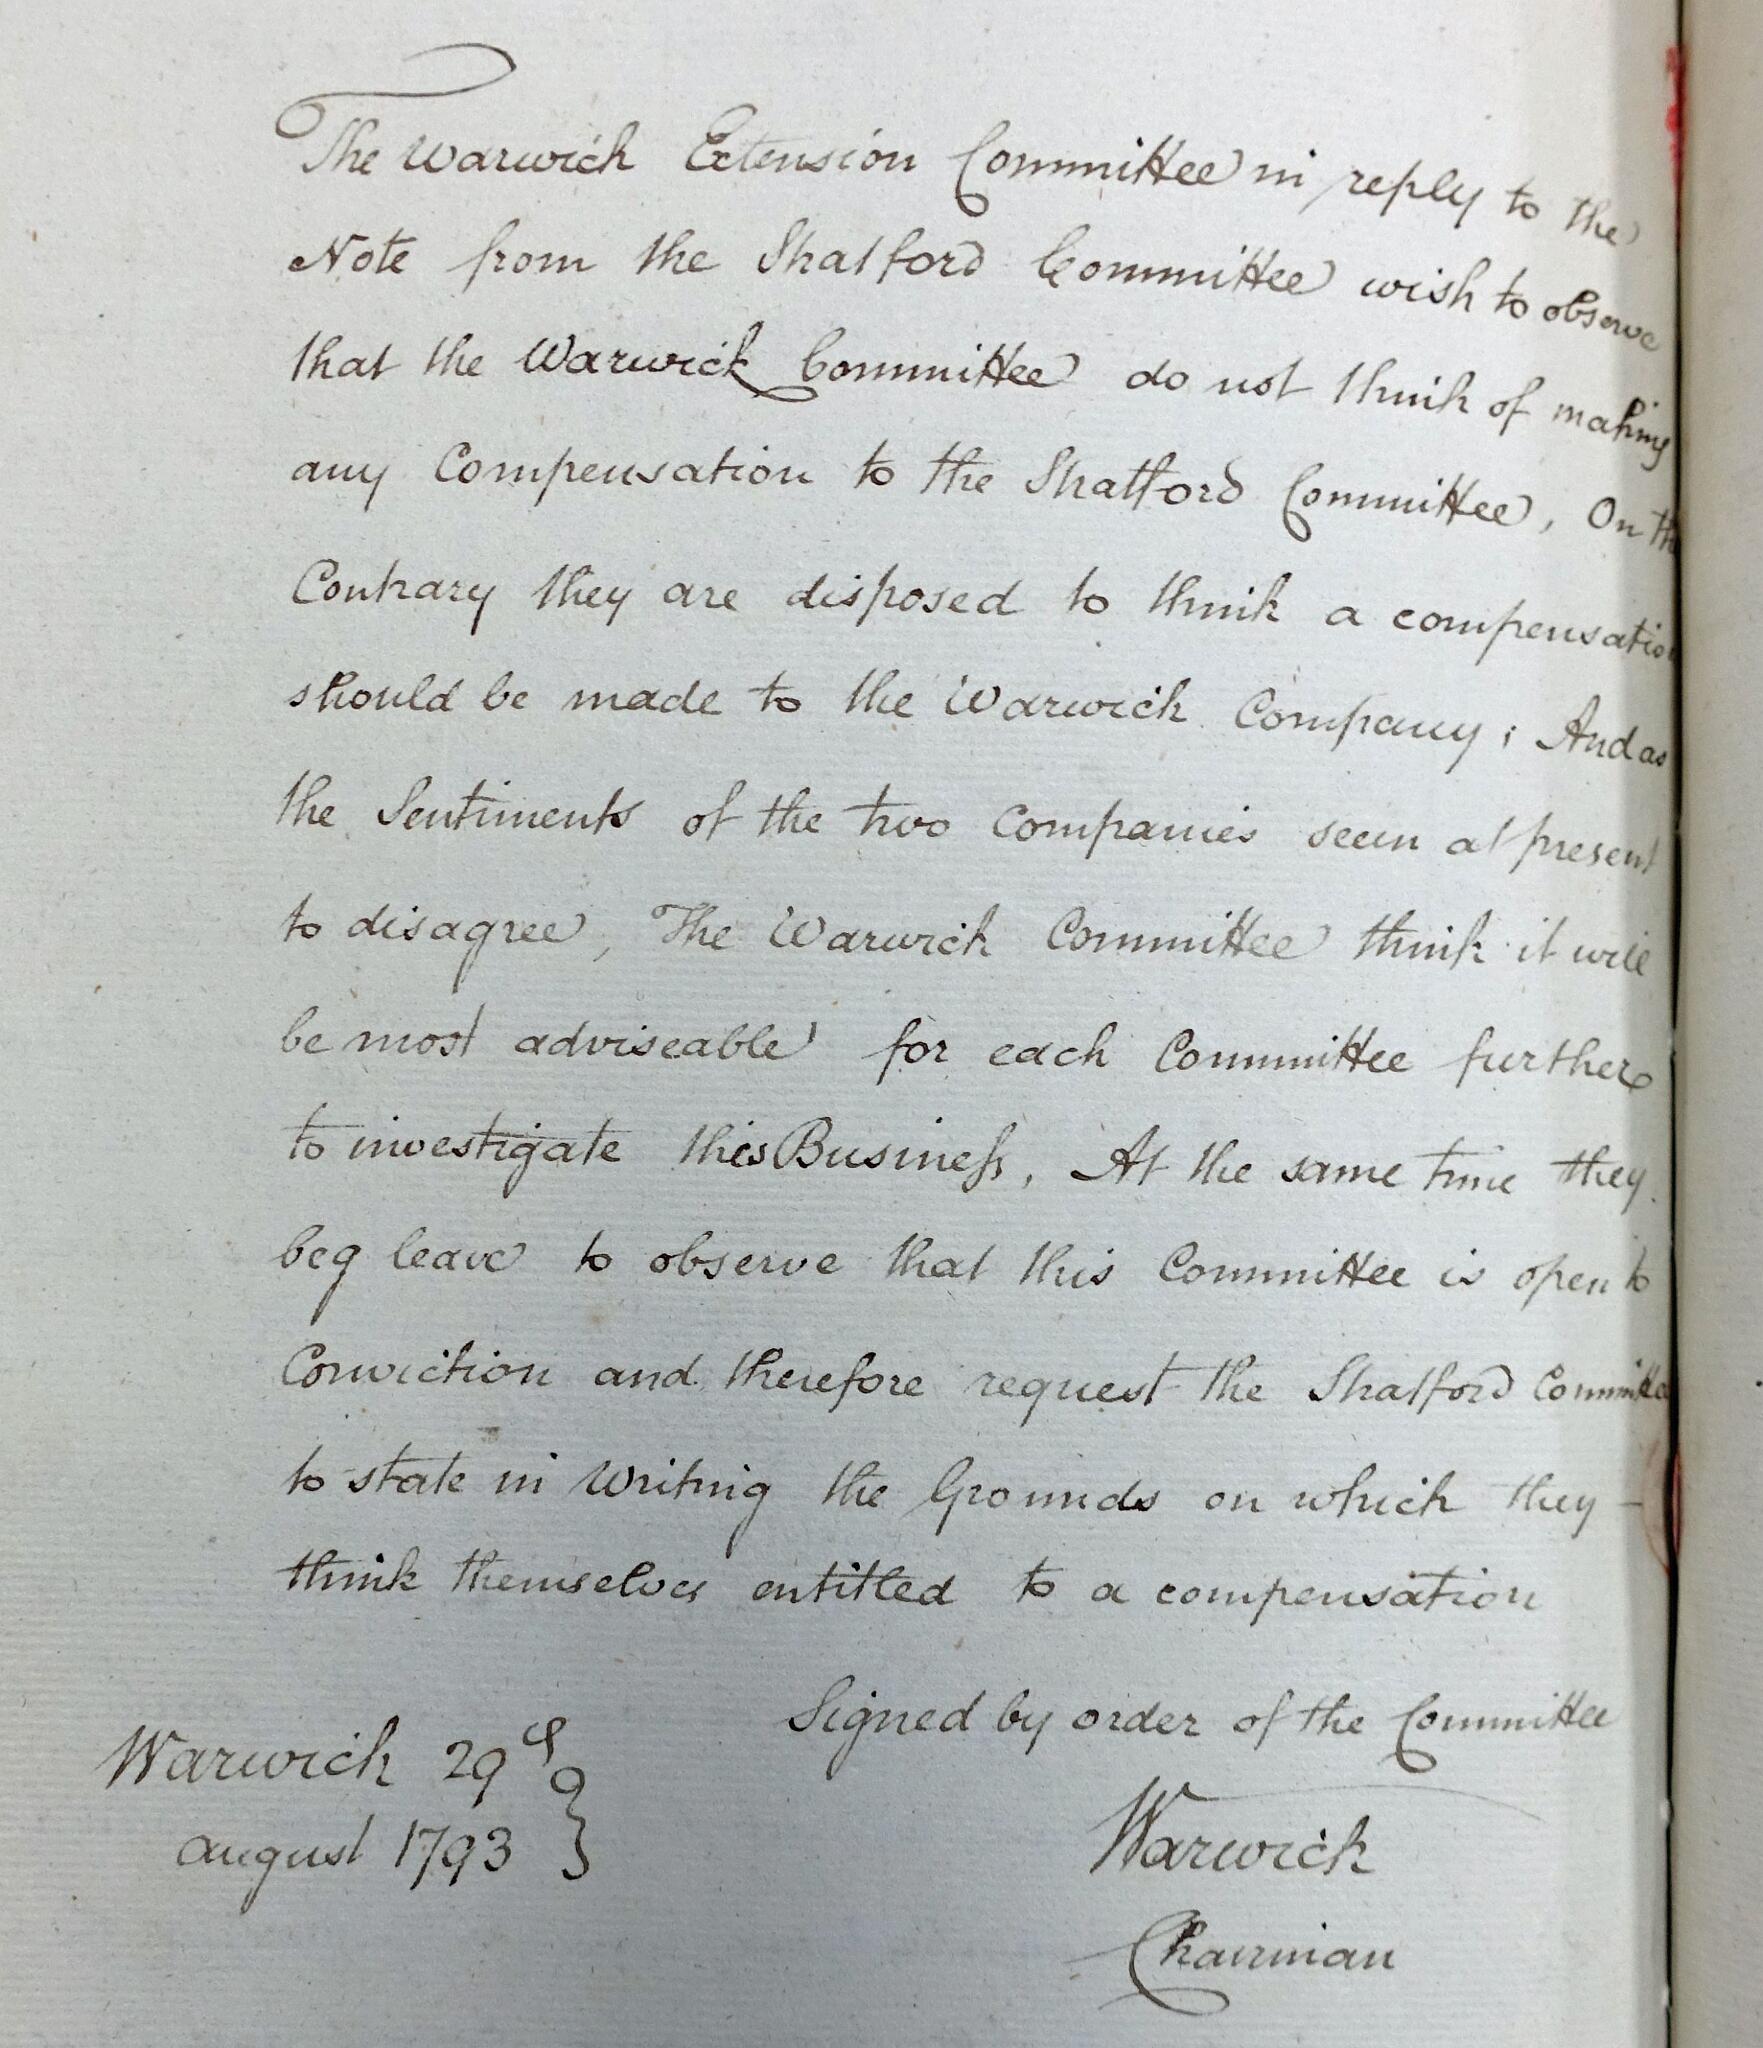 The Warwick Extension Committee in reply to the
Note from the Stratford Committee wish to observe
that the Warwick Committee do not think of making
any Compensation to the Stratford Committee, On the
Contrary they are disposed to think a compensation
should be made to the Warwick Company; And as
the Sentiments of the two Companies seem at present
to disagree, The Warwick Committee think it will
be most adviseable for each Committee further
to investigate this Business, At the same time they
beg leave to observe that this Committee is open to
Conviction and therefore request the Stratford Committee
to state in Writing the Grounds on which they –
think themselves entitled to a compensation
Signed by order of the Committee
Warwick 29th
august 1793 }
Warwick
Chairman